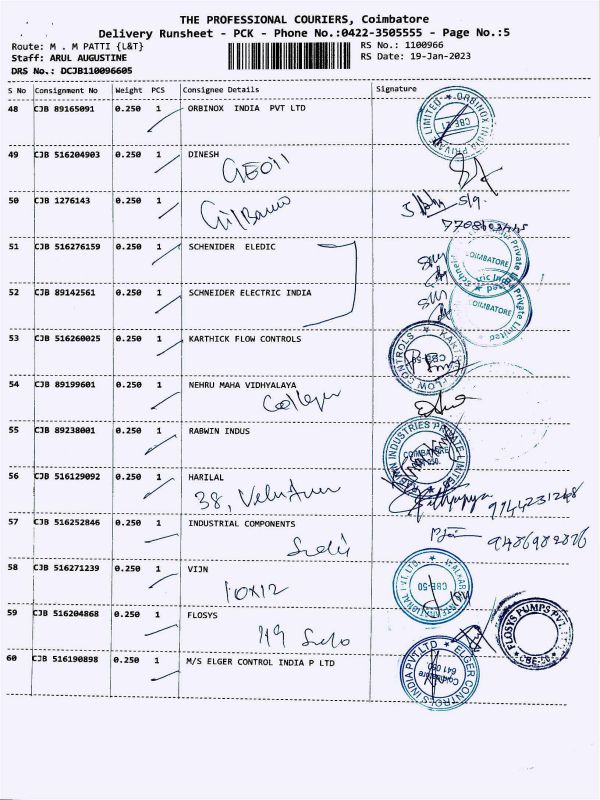 THE PROFESSIONAL COURIERS, Coimbatore
Delivery Runsheet - PCK - Phone No.:0422-3505555 - Page No.:5
Route: M . M PATTI {L&T}
RS No.: 1100966
Staff: ARUL AUGUSTINE
RS Date: 19-Jan-2023
DRS No.: DCJB110096605
S No Consignment No Weight PCS Consignee Details Signature
48 CJB 89165091 0.250 1 ORBINOX INDIA PVT LTD
ORBINOX INDIA PRIVATE LIMITED
49 CJB 516204903 0.250 1 DINESH
50 CJB 1276143 0.250 1
51 CJB 516276159 0.250 1 SCHENIDER ELEDIC
COIMBATORE
52 CJB 89142561 0.250 1 SCHNEIDER ELECTRIC INDIA
COIMBATORE
53 CJB 516260025 0.250 1 KARTHICK FLOW CONTROLS
FLOW CONTROLS
CBE-50
54 CJB 89199601 0.250 1 NEHRU MAHA VIDHYALAYA
College
55 CJB 89238001 0.250 1 RABWIN INDUS
RABWIN INDUSTRIES PRIVATE LIMITED
COIMBATORE
56 CJB 516129092 0.250 1 HARILAL
38,
57 CJB 516252846 0.250 1 INDUSTRIAL COMPONENTS
9486982876
58 CJB 516271239 0.250 1 VIJN
10x12
CBE-50
59 CJB 516204868 0.250 1 FLOSYS
FLOSYS PUMPS PVT.
CBE-50
60 CJB 516190898 0.250 1 M/S ELGER CONTROL INDIA P LTD
ELGER CONTROLS INDIA PVT LTD
Coimbatore
641 050.